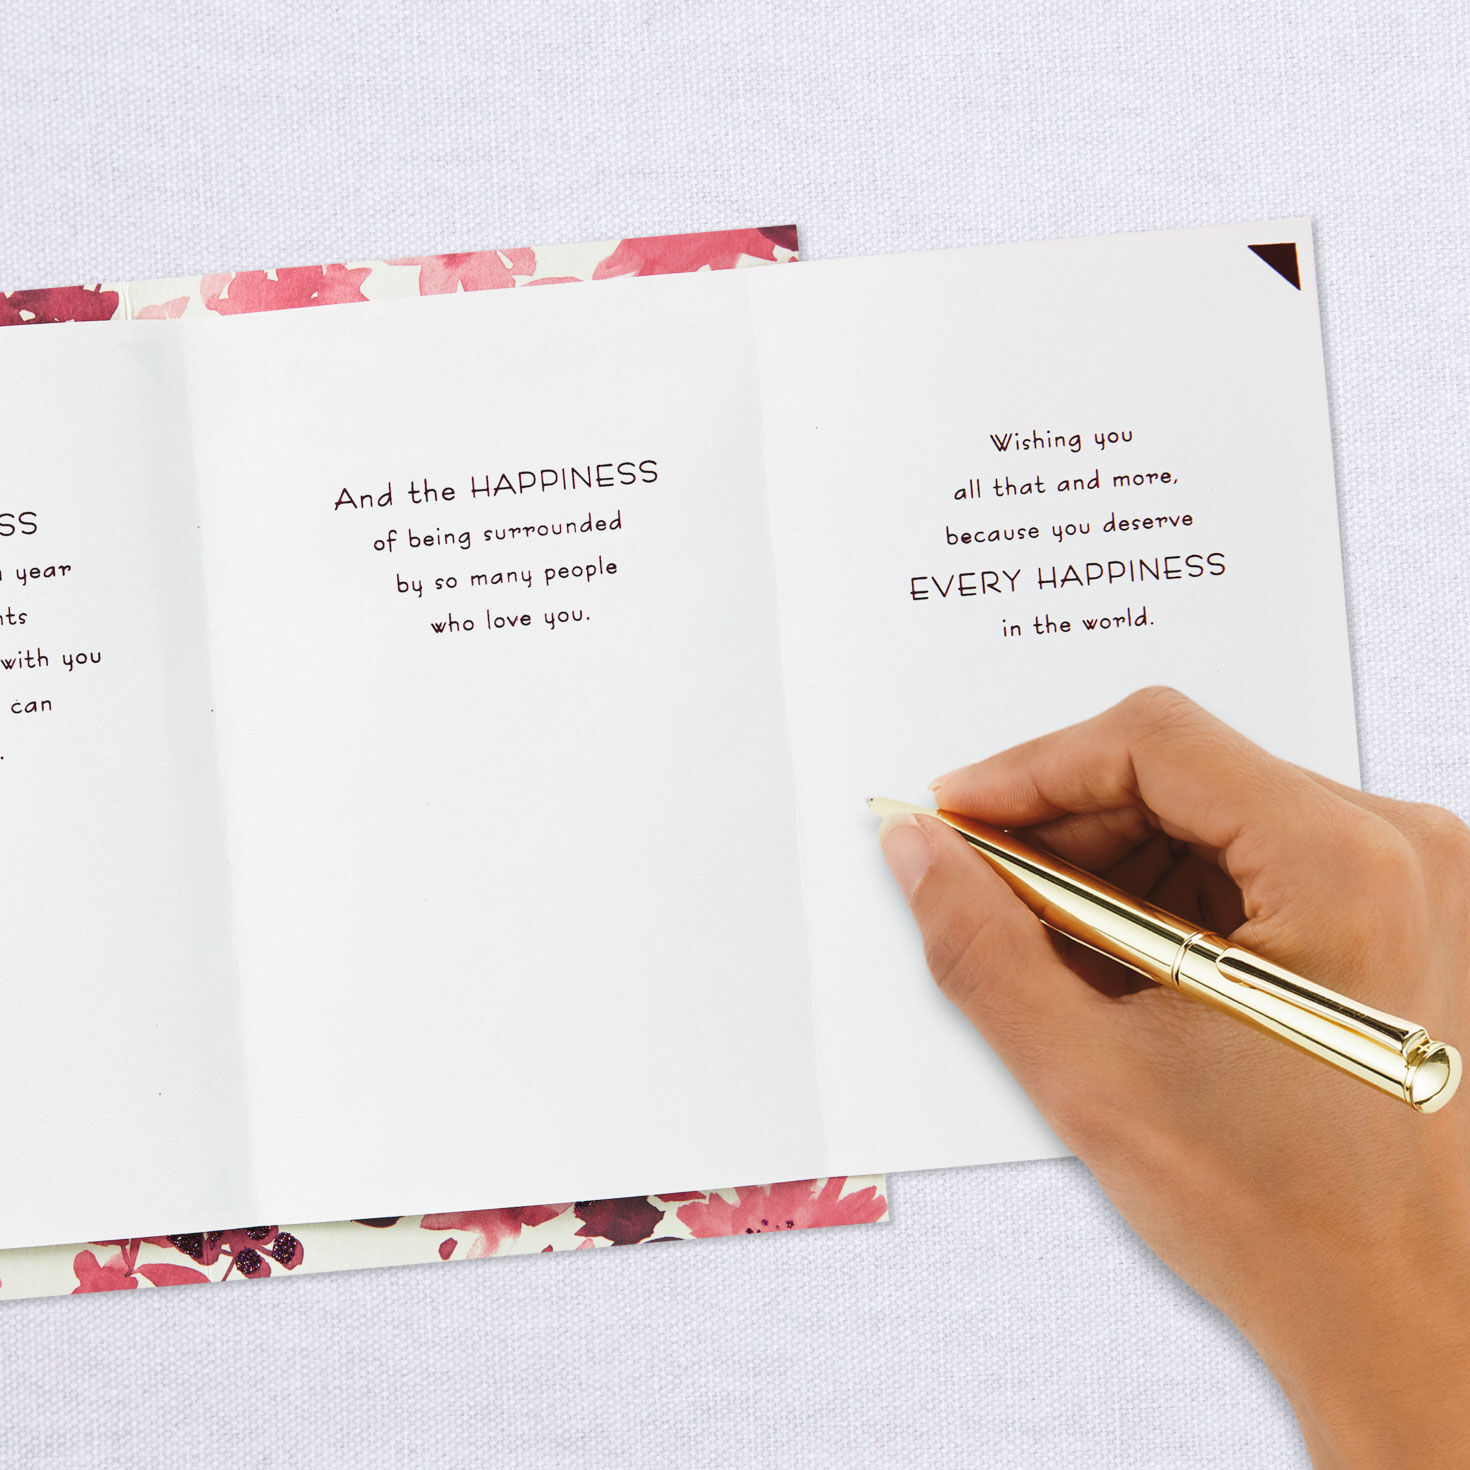 SS
year
with you
can
And the HAPPINESS
of being surrounded
by so many people
who love you.
Wishing you
all that and more,
because you deserve
EVERY HAPPINESS
in the world.